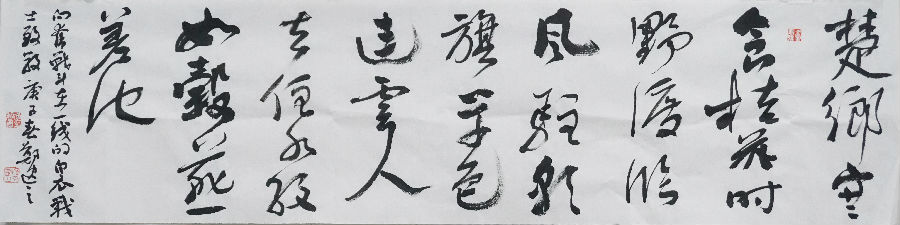 楚鄉寒
食桔花时
野渡临
風駐彩
旗草色
连雲人
去住水纹
如縠燕
差池
向奮戰斗在一线的白衣戰
士致敬庚子春